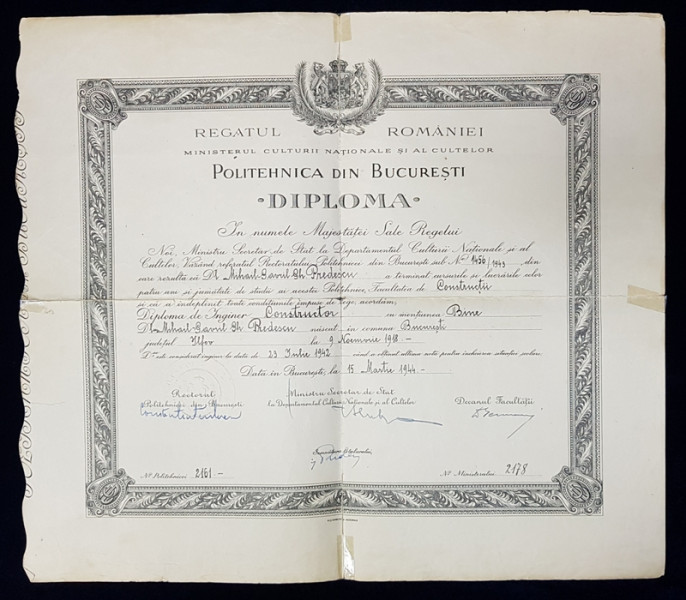 REGATUL ROMÂNIEI
MINISTERUL CULTURII NAȚIONALE ȘI AL CULTELOR
POLITEHNICA DIN BUCUREȘTI
DIPLOMA
In numele Majestatei Sale Regelui
Noi, Ministru Secretar de Stat la Departamentul Culturii Naționale și al
Cultelor, Văzând referatul Rectoratului Politehnicei din București sub No 1456/1943 din
care rezultă că Dl Mihail-Gavril Gh. Predescu a terminat cursurile și lucrările celor
patru ani și jumătate de studii ai acestei Politehnice, Facultatea de Construcții
și că a îndeplinit toate condițiunile impuse de lege, acordăm,
Diploma de Inginer Constructor cu mențiunea Bine
Dl Mihail-Gavril Gh. Predescu născut în comuna București
județul Ilfov la 9 Noemvrie 1918 -
D-sa este considerat inginer la data de 23 Iulie 1942 când a obținut ultima notă pentru încheierea situației școlare.
Data în București, la 15 Martie 1944 -
Rectorul
Politehnicei din București
Ministru Secretar de Stat
la Departamentul Culturii Naționale și al Cultelor
Decanul Facultății
No Politehnicei 2161 -
No Ministerului 2178